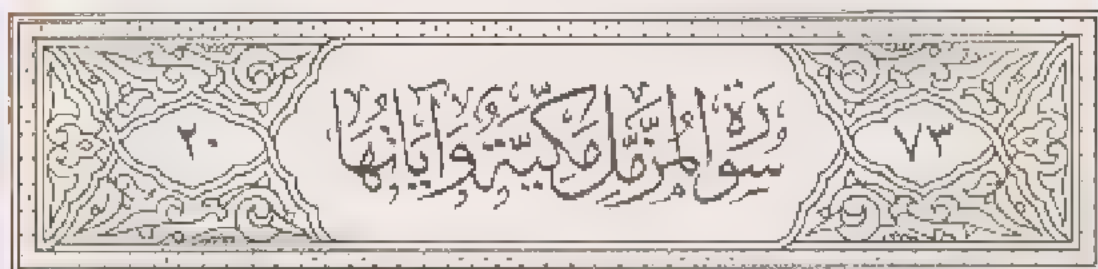 ٧٣ سورة المزمل مكية وآياتها ٢٠